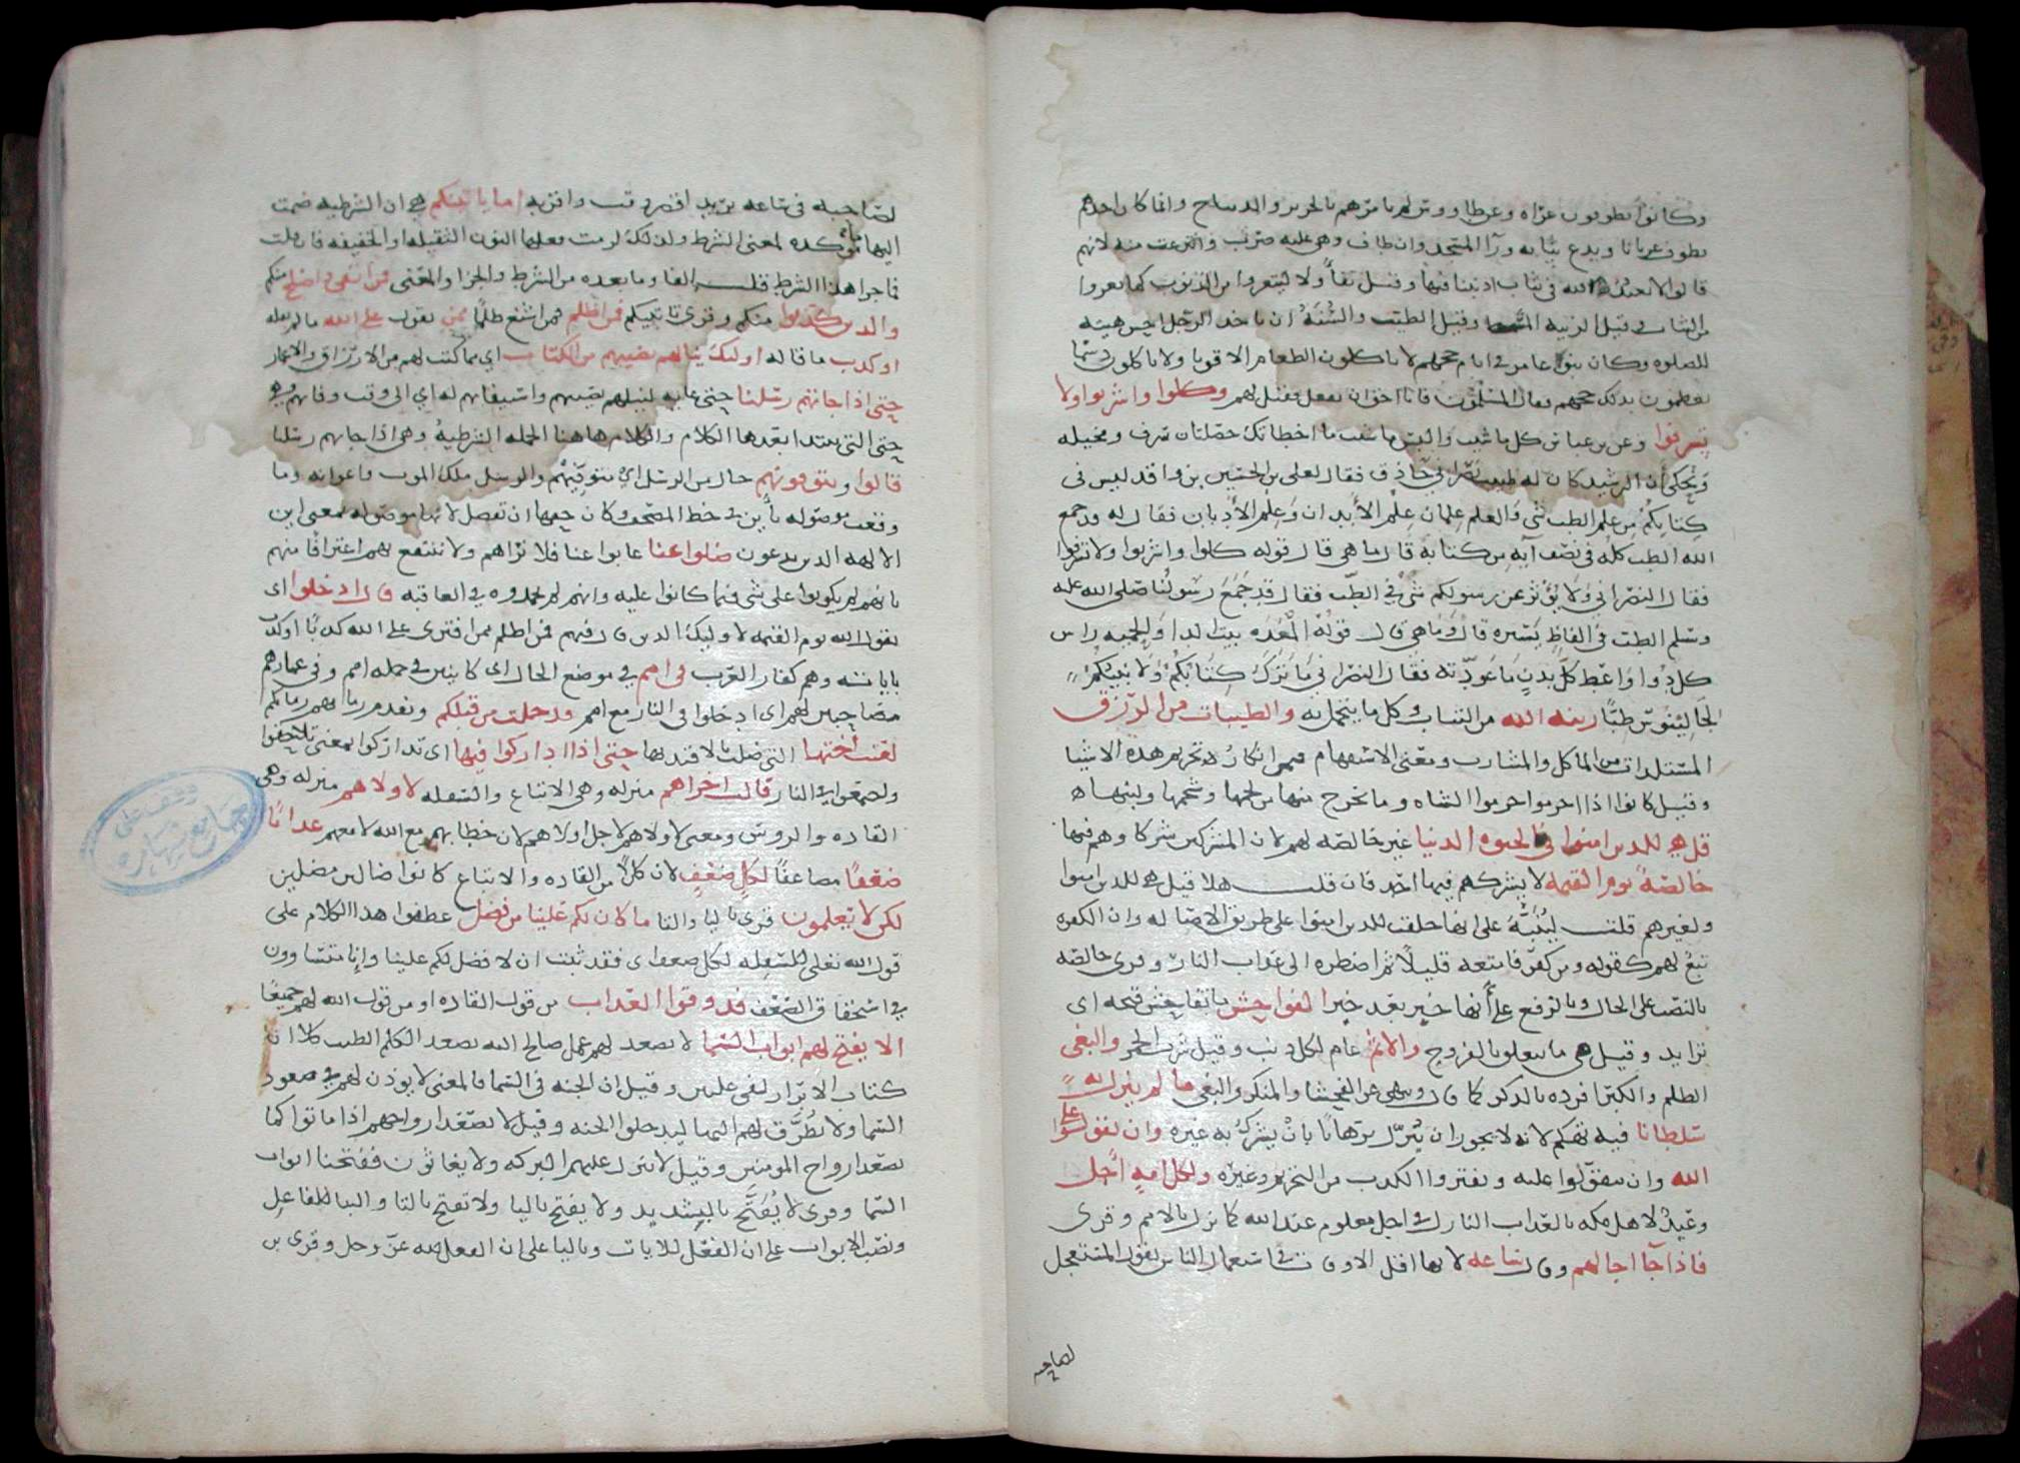 وكانوا يطوفون عراه وعن طاووس لم يامرهم بالحرير والديباج وانما كان احدهم
يطوف عريانا ويدع ثيابه ورآ المسجد وان طاف وهي عليه ضرب وانتزعت منه لانهم
قالوا لا نعبد الله في ثياب اذنبنا فيها وقيل تفألا ليتعروا من الذنوب كما تعروا
من الثياب وقيل الزينه المشط وقيل الطيب والسُنَّة ان ياخذ الرجل احسن هيئته
للصلوه وكان بنو عامر في ايام حجهم لا ياكلون الطعام الا قوتا ولا ياكلون دسما
يعظمون بذلك حجهم فقال المسلمون فانا احق ان نفعل فقيل لهم وكلوا واشربوا ولا
تسرفوا وعن بن عباس كل ما شيت والبس ما شيت ما اخطاتك خصلتان سرف ومخيله
وَيُحكى ان الرشيد كان له طبيب نصراني حاذق فقال لعلي بن الحسين بن واقد ليس في
كِتابِكُم مِن علم الطب شي والعلم عِلمان عِلم الأبدان وَعِلم الأديان فقال له قد جمع
الله الطب كله في نصف آيه مِن كتابه قال ما هي قال قوله كلوا واشربوا ولا تسرفوا
فقال النصراني وَلا يؤثر عن رسولكم شي في الطب فقال قد جَمَعَ رَسولُنا صلى الله عليه
وسلم الطب في الفاظ يَسيره قال وَما هي قال قولُه المَعِدَه بيت الدا وَالحِميه راس
كل دوا وَاعْطِ كلَّ بدنٍ ما عَوّدته فقال النصراني ما تَرَكَ كِتَابُكُمْ وَلا نبيكُمْ
لجالينوس طِبًّا زينه الله من الثياب وكل ما يتجمل به والطيبات من الرزق
المستلذات من الماكل والمشارب ومعنى الاستفهام في من انكار تحريم هذه الاشيا
وقيل كانوا اذا احرموا حرموا الشاه وما يخرج منها من لحمها وشحمها ولبنها
قل هي للذين امنوا في الحيوه الدنيا غير خالصه لهم لان المشركين شركاوهم فيها
خالصةً يوم القيمه لا يشركهم فيها احد فان قلت هلا قيل هي للذين امنوا
ولغيرهم قلت ليُنَبَّه على انها خلقت للذين امنوا على طريق الاصاله وان الكفره
تبعٌ لهم كقوله ومن كفر فامتعه قليلًا ثم اضطره الى عذاب النار وقرى خالصه
بالنصب على الحال وبالرفع على أنها خبر بعد خبر الفواحش ما تفاحش قبحه اي
تزايد وقيل هي ما يتعلق بالفروج والاثم عام لكل ذنب وقيل شرب الخمر والبغي
الظلم والكبر افرده بالذكر كما قال وينهى عن الفحشا والمنكر والبغي ما لم ينزل به
سلطانا فيه تهكم لانه لا يجوز ان يُنزّل برهانًا بانْ يشركُ به غيره وان تقولوا على
الله وان تتقولوا عليه وتفتروا الكذب من التحريم وغيره ولكل امهٍ أجل
وعيدٌ لاهل مكه بالعذاب النازل في اجل معلوم عند الله كما نزل بالامم وقرى
فاذا جآ اجالهم وقال ساعه لانها اقل الاوقات في استعمال الناس يقول المستعجل
لصاحبه
لصاحبه في ساعه يريد اقصر وقت واقربه اما ياتينكم هي ان الشرطيه ضمت
اليها ما مؤكده لمعنى الشرط ولذلك لزمت فعلها النون الثقيله او الخفيفه فان قلت
فما جزا هذا الشرط قلت الفا وما بعده من الشرط والجزا والمعنى فمن اتقى واصلح منكم
والذين كذبوا منكم وقرى تاتيكم فمن اظلم فمن اشنع ظلمًا ممن تقول على الله ما لم يقله
او كذب ما قاله اوليك ينالهم نصيبهم من الكتاب اي مما كتب لهم من الارزاق والاعمار
حتى اذا جاتهم رسلنا حتى غايه لنيلهم نصيبهم واستيفايهم له اي الى وقت وفاتهم وهي
حتى التي يبتدا بعدها الكلام والكلام هاهنا الجمله الشرطيه وهي اذا جاتهم رسلنا
قالوا ويتوفونهم حال من الرسل اي متوفِّيهم والرسل ملك الموت واعوانه وما
وقعت موصوله بأين في خط المصحف وكان حقها ان تفصل لانها موصوله بمعنى اين
الالهه الذين تدعون ضلوا عنا غابوا عنا فلا نراهم ولا ننتفع بهم اعترافًا منهم
بانهم لم يكونوا على شي فيما كانوا عليه وانهم لم يحمدوه في العاقبه قال ادخلوا اي
يقول الله يوم القيمه لاوليك الذين قال فيهم فمن اظلم ممن افترى على الله كذبًا او كذب
باياته وهم كفار العرب في امم في موضع الحال اي كاينين في جمله امم وفي غمارهم
مصاحبين لهم اي ادخلوا في النار مع امم قد خلت من قبلكم وتقدم زمانهم زمانكم
لعنت اختها التي ضلت بالاقتدا بها حتى اذا اداركوا فيها اي تداركوا بمعنى تلاحقوا
واجتمعوا في النار قالت اخراهم منزله وهي الاتباع والسفله لاولاهم منزله وهي
القاده والروس ومعنى لاولاهم لاجل اولاهم لان خطابهم مع الله لا معهم عذابًا
ضعفًا مضاعفًا لكلٍ ضعفٍ لان كلًا من القاده والاتباع كانوا ضالين مضلين
لكن لا تعلمون قرى باليا والتا ما كان لكم علينا من فضل عطفوا هذا الكلام على
قول الله تعلى للسفله لكل ضعف اي فقد ثبت ان لا فضل لكم علينا وإنا متساوون
في استحقاق الضعف فذوقوا العذاب من قول القاده او من قول الله لهم جميعًا
لا يفتح لهم ابواب السما لا يصعد لهم عمل صالح اليه يصعد الكلم الطيب كلا ان
كتاب الابرار لفي عليين وقيل ان الجنه في السما فالمعنى لا يوذن لهم في صعود
السما ولا يُطَرَّق لهم اليها ليدخلوا الجنه وقيل لا تصعد ارواحهم اذا ماتوا كما
تصعد ارواح المومنين وقيل لا تنزل عليهم البركه ولا يغاثون ففتحنا ابواب
السما وقرى لا يُفَتَّح بالتشديد ولا يفتح باليا ولا تفتح بالتا والبنا للفاعل
ونصب الابواب على ان الفعل للايات وباليا على ان الفعل لله عزّ وجل وقرى بن
وقف على
جامع شهاره